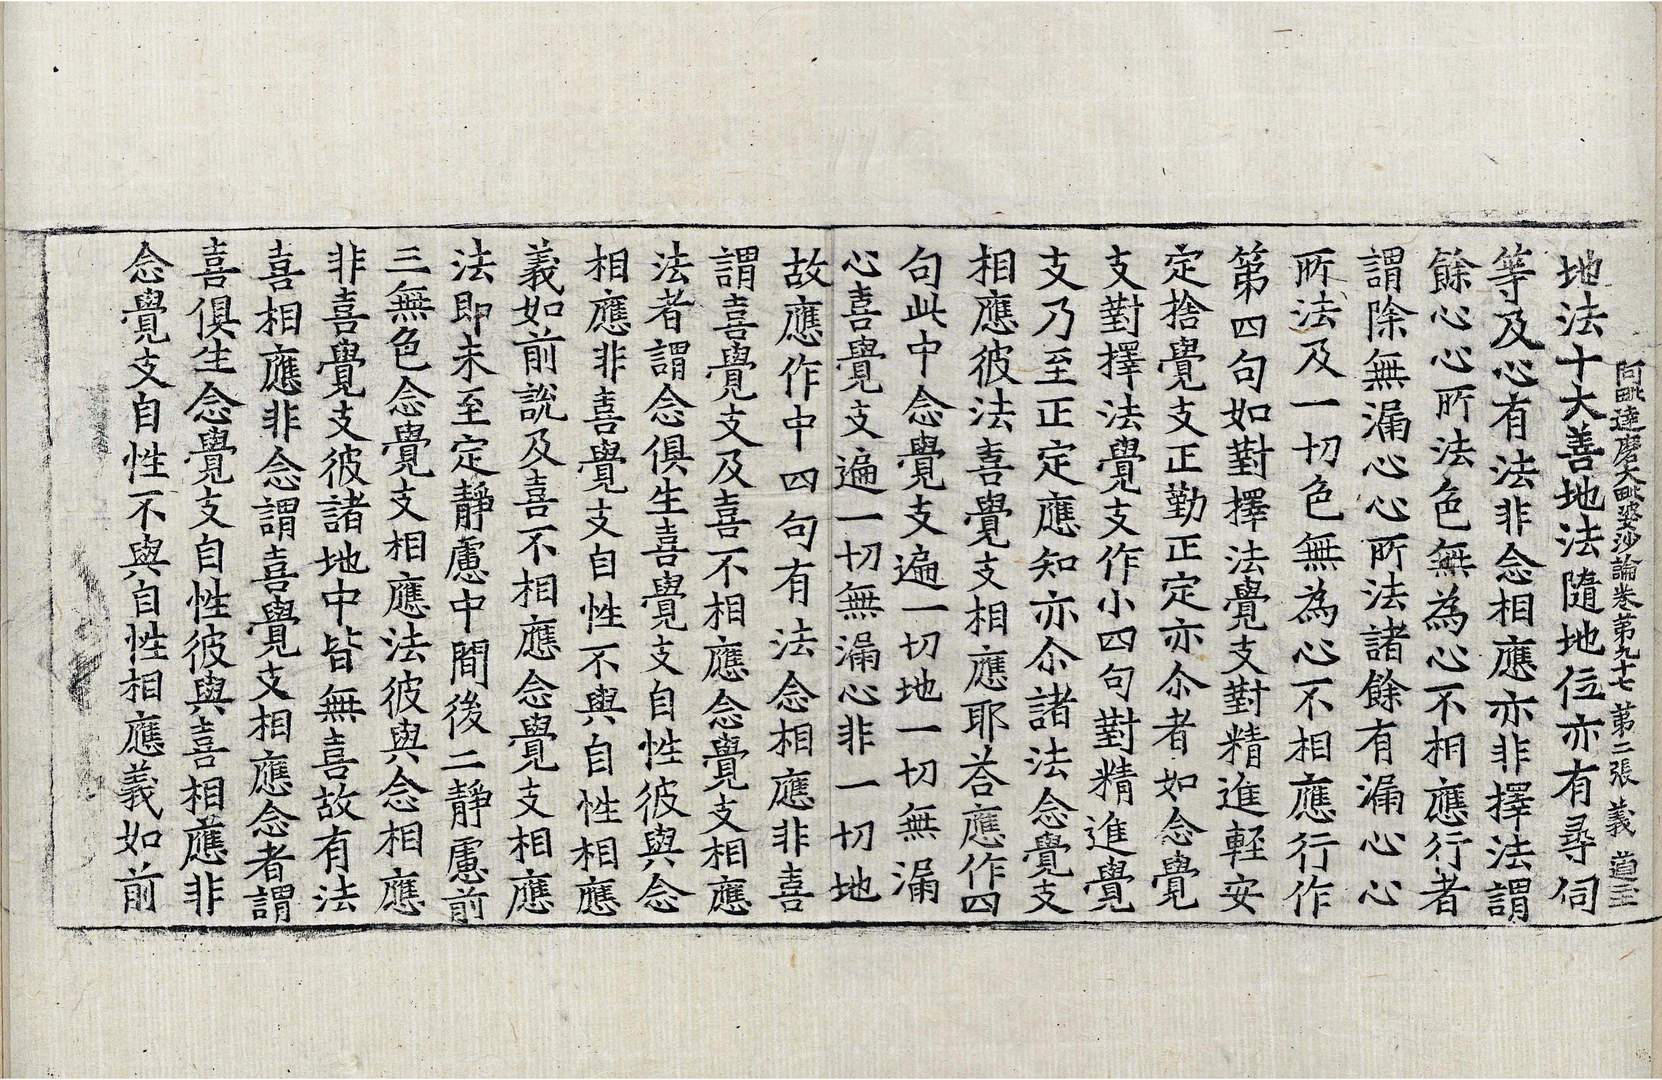 阿毗達磨大毗婆沙論卷第九十七　第二張　義　道玉
地法十大善地法隨地位亦有尋伺
等及心有法非念相應亦非擇法謂
餘心心所法色無為心不相應行者
謂除無漏心心所法諸餘有漏心心
所法及一切色無為心不相應行作
第四句如對擇法覺支對精進輕安
定捨覺支正勤正定亦尒者如念覺
支對擇法覺支作小四句對精進覺
支乃至正定應知亦尒諸法念覺支
相應彼法喜覺支相應耶荅應作四
句此中念覺支遍一切地一切無漏
心喜覺支遍一切無漏心非一切地
故應作中四句有法念相應非喜
謂喜覺支及喜不相應念覺支相應
法者謂念俱生喜覺支自性彼與念
相應非喜覺支自性不與自性相應
義如前說及喜不相應念覺支相應
法即未至定靜慮中間後二靜慮前
三無色念覺支相應法彼與念相應
非喜覺支彼諸地中皆無喜故有法
喜相應非念謂喜覺支相應念者謂
喜俱生念覺支自性彼與喜相應非
念覺支自性不與自性相應義如前